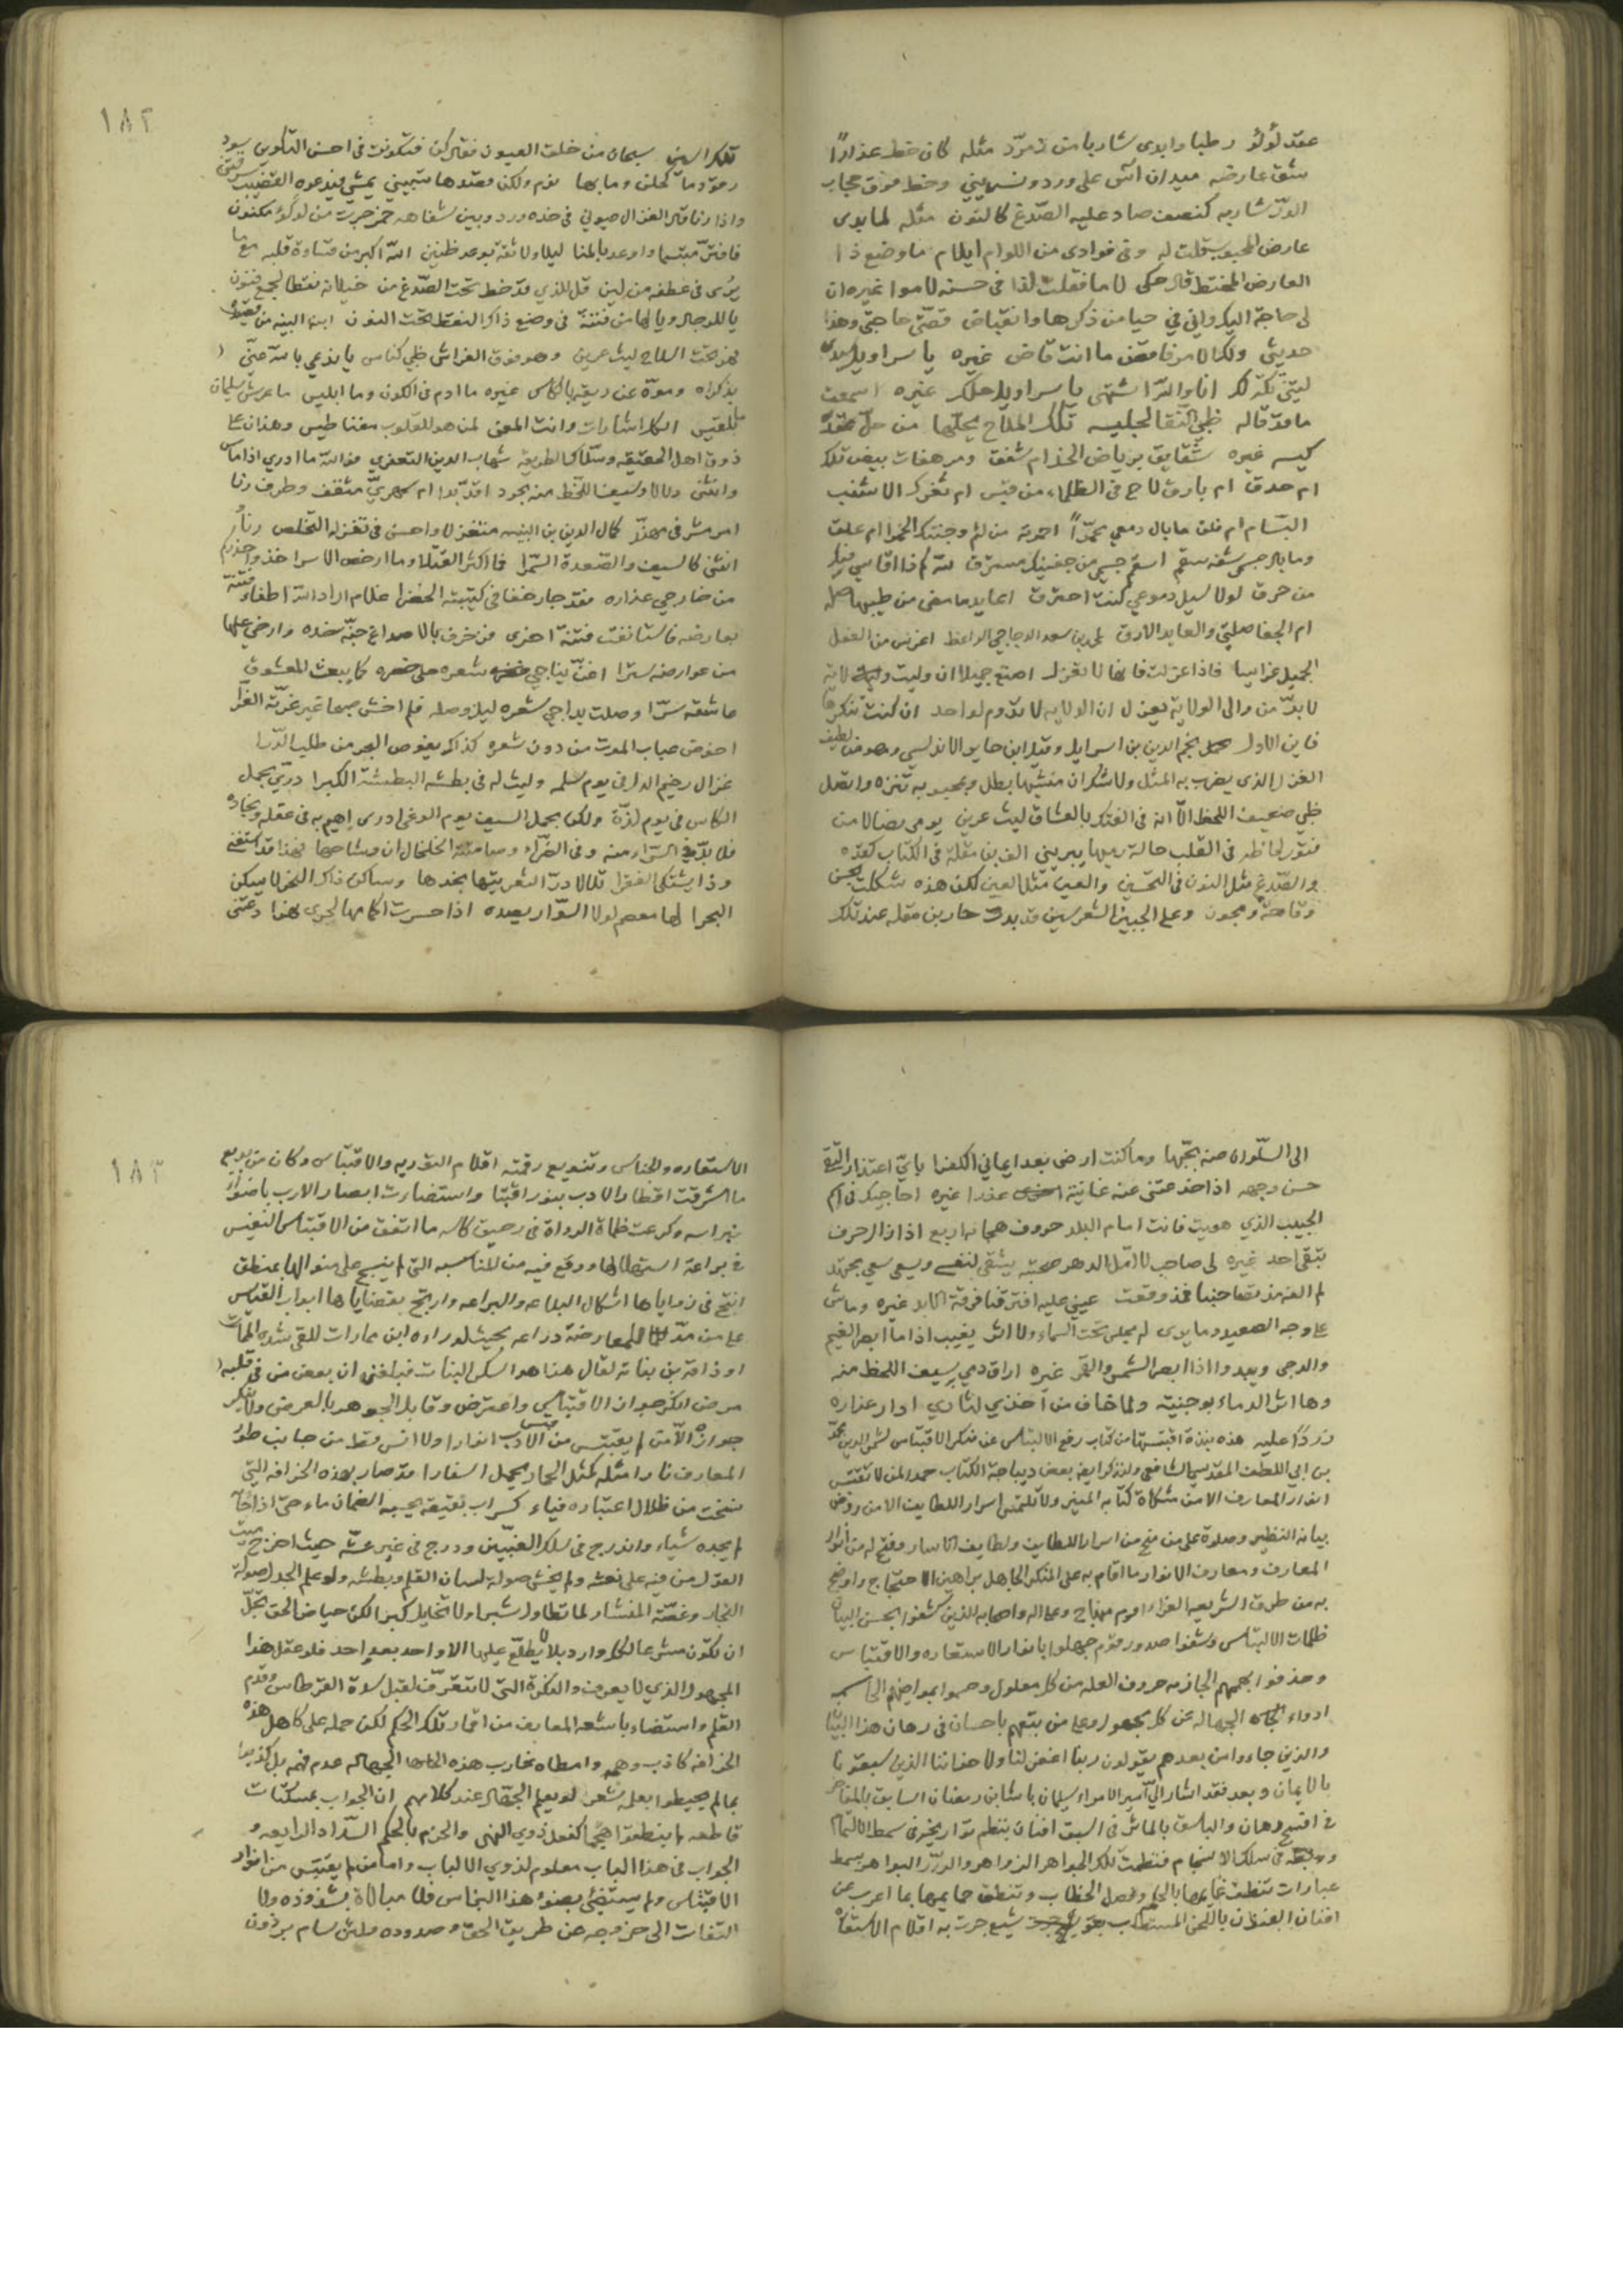 عقد لؤلؤ رطبا وابدى شاربا من زمرّد مثله كان خط عذاراً
شق عارضه ميدان آس على ورد ونسرين وخط فوق حجاب
الدرّ شاربه كنصف صاد عليه الصّدغ كالنون مثله لما بدى
عارض المحبوب قلت له وفى فوادى من اللوام ايلام ما وضع ذا
العارض المختط قال حكى لاما فقلت لذا فى حسنه لاموا غيره ان
لى حاجة اليك وانى فى حيا من ذكرها وانقباض قصّتى حاجتى وهذا
حديثى ولك الامر فاقض ما انت قاض غيره يا سراويل
ليتنى تكّة لك انا والله اشتهى يا سراويل حلك غيره اسمعت
ما قد قاله ظبى النّقا لجليسه تلك الملاح يحلّها من حلّ عقدة
كيسه غيره شقايق برياض الخد ام شفق ومرهفات بيض تلك
ام حدق ام بارق لاح فى الظلماء من قبس ام ثغرك الاشنب
البسّام ام فلق ما بال دمعى محمّراً احمرته من لثم وجنتك الحمرا ام علق
وما بال جسمى شفه سقم اسقم جسمى من جفنيك مسترق لله كم ذا اقاسى فيك
من حرق لولا سيل دموعى كنت احترق اعايد ما مضى من طيبها صله
ام الجفا صليتى والعايد الارق على بن سعد الدجاجى الواعظ اغرس من الفعل
الجميل غراسا فاذا عزلت فانها لا تعزل اصنع جميلا ان وليت ولاية
لا بدّ من والى الولاية يعزل ان الولايه لا تدوم لواحد ان كنت تنكرها
فاين الاول نجم الدين بن اسرايل وقيل ابن جابر الاندلسى وهو من لطيف
الغزل الذى يضرب به المثل ولا شكران منشيها بطل ومحبوبه تنزه واتصل
ظبى ضعيف اللحظ الّا انه فى الفتك بالعشاق ليث عرين يومى نضالا من
فتور لحاظه فى القلب حالة رميها يبرينى الف ابن مقلة فى الكتاب كقدّه
والصّدغ مثل النون فى التحسين والعين مثل العين لكن هذه شكلت بحسن
وقاحة ومجون وعلى الجبين الشعر سين قد بدت حار بن مقله عند تلك
تلك السين سبحان من خلق العيون فقال كن فتكونت فى احسن التكوين سود
رقود ما كحلن وما بها نوم ولكن قصدها تسبينى يمشى فيدعوه القضيب سرقتنى
واذا رنا قال الغزال عيونى فى خده ورد وبين شفاهه خمر جرت من لؤلؤ مكنون
فافترّ مبتسما واوعد بالمنا ليلا ولا ثقة بوعد ظنين الله اكبر من قساوة قلبه مع ما
يرى فى عطفه من لين قل للذى قد خط تحت الصّدغ من خيلانه نقطا لجمع فتون
يا للرجال ويا لها من فتنة فى وضع ذاك النقط تحت النون ابن النبيه من قصيدة
فهو تحت السلاح ليث عرين وهو فوق الفراش ظبى كناس يا نديمى بالله غنّى
بذكراه ومرّة عن ريقه بالكاس غيره ما ادم فى الكون وما ابليس ما عرش سليمان
بلقيس الكل اشارات وانت المعنى لمن هو للقلوب مغناطيس وهذان على
ذوق اهل الحقيقه وسلّاك الطريقه شهاب الدين التلعفرى فوالله ما ادرى اذا ماس
وانثنى دلالا وسيف اللحظ منه يجرد اقدّ بدا ام سمهرىّ مثقف وطرف رنا
ام مشرفى مهنّد كمال الدين بن النبيه متغزلا واحسن فى تغزله التخلص رنا
انثنى كالسيف والصّعدة السّمرا فما اكثر القتلا وما ارخص الاسرا خذو احذركم
من خارجى عذاره فقد جاء زحفا فى كتيبته الخضرا غلام اراد الله اطفاء فتنة
بعارضه فاستانفت فتنة اخرى فزخرف بالاصداغ جنّة خده وارخى عليها
من عوارضه سترا اغنّ يناجى شعره حلى خصره كما يبعث المعشوق
عاشقه سرّا وصلت بداجى شعره ليل وصله فلم اخش صبحا غير غرّته الغرّا
اخوض عباب الموت من دون ثغره كذاك يغوص البحر من طلب الدّرا
غزال رخيم الدل فى يوم سلمه وليث له فى بطشه البطشة الكبرا درىّ يحمل
الكاس فى يوم لذّة ولكن بحمل السيف يوم الوغى ادرى اهيم به فى عقله ونجاده
فلا بدّ فى السّراء منه وفى الضّرّاء وصامتة الخلخال ان وشاحها فهذا قد استغنى
وذا يشتكى الفقرا تلالا درّ الثغر بتها بخدها وساكن ذاك النحر لا يسكن
البحرا لها معصم لولا السّوار يصده اذا حسرت اكمامها لجرى نهرا دعتنى
الى السلوان عنه بحبّها وما كنت ارضى بعد ايمانى الكفرا باىّ اعتذار التقى
حسن وجهه اذا خدعتنى عنه غانية عذرا غيره احاجيك فى اسم
الحبيب الذى هويت فانت امام البلد حروف هجاه اربع اذا زال حرف
تبقى احد غيره لى صاحب لا امل الدهر صحبته يشقى لنفعى ويسعى سعى مجتهد
لم القه مذ تصاحبنا فمذ وقعت عينى عليه افترقنا فرقة الابد غيره وماش
على وجه الصعيد وما يدرى لم يمش تحت السماء ولا اثر يغيب اذا ما ابصر الغيم
والدجى ويبدوا اذا ابصر الشمس والقمر غيره اراق دمى بسيف اللحظ منه
وها اثر الدماء بوجنيته ولما خاف من آخذى لثارى ادار عذاره
زردًا عليه هذه نبذة اقتبستها من كتاب رفع الالتباس عن منكر الاقتباس لشمس الدين محمد
بن ابى اللطف المقدسى الشافعى ولنذكر ايضا بعض ديباجة الكتاب حمدا لمن لا تقتبس
انوار المعارف الا من مشكاة كتابه المنير ولا تلتمس اسرار اللطايف الا من روض
بيانه النظير وصلاة على من منح من اسرار اللطايف ولطايف الاسرار وفتح له من انوار
المعارف ومعارف الانوار ما اقام به على المنكر الجاهل براهين الاحتجاج واوضح
به من طرق الشريعه الغراء اقوم منهاج وعلى اله واصحابه الذين كشفوا بحسن البيان
ظلمات الالتباس وشفوا صدور قوم جهلوا بانوار الاستعاره والاقتباس
وحذفوا بهممهم الجازمه حروف العله من كل معلول وحسموا بمواضيهم
ادواء الجهاله عن كل مجهول وعلى من يتبعهم باحسان فى رهان هذا البيان
والذين جاءوا من بعدهم يقولون ربنا اغفر لنا ولاخواننا الذين سبقونا
بالايمان وبعد فقد اشار الىّ امير الامراء سليمان باشا بن رمضان السابق بالمفاخر
فى رهان والباسق بالماثر فى السبق افنان بنظم
فى سلك الانسجام فنظمت تلك الجواهر الزواهر والدرّر البواهر بسمط
عبارات تنطف غمايمها بالحكم وفصل الخطاب وتنطق حمايمها بما اعرب عن
افنان الفنون باللحن المستطاب جرت به اقلام الاستعاره
الاستعاره والجناس وتنويع رقمته اقلام التوريه والاقتباس وكان من بديع
ما اشرقت اقطار الادب بنور اقتباسه واستضاءت ابصار الارب باضواء
نبراسه وكرعت ظماة الرواة فى رحيق كاسه ما اتفق من الاقتباس النفيس
فى براعة استهلالها ووقع فيه من المناسبه التى لم ينسج على منوالها بمنطق
انتج فى زواياها اشكال البلاغه والبراعه وارتج بقضاياها ابواب القياس
على من مدّ للمعارضة ذراعه بحيث لو راءه ابن عمارات للقى بشده الممات
او ذاقه بن نباته لقال هذا هو السكر النبات فبلغنى ان بعض من فى قلبه
مرض انكر جواز الاقتباس واعترض وقابل الجوهر بالعرض ولا ينكر
جوازه الّا من لم يقتبس من قبس الادب انوارا ولا انس قط من جانب طور
المعارف نارا مثله كمثل الحمار يحمل اسفارا وقد صار بهذه الخرافه التى
نتجت من ظلال اعتباره فياء كسراب بقيعة يحسبه الظمان ماء حتى اذا جاءه
لم يجده شياء واندرج فى سلك الغبيّين ودرج فى غير عشه حيث اخرج ميت
العدل من فيه على نعشه ولم يخش صولة لسان القلم وبطشه ولو علم الجدل صولة
النجار وغصّة المنشار لما تطاول شبرا ولا تخايل كبرا لكن حياض الحق تجلّ
ان تكون مشرعا لكل وارد بل لا يطلع عليها الا واحد بعد واحد فلو عقل هذا
المجهول الذى لا يعرف والنكرة التى لا تتعرّف لقبل القرطاس وقدم
القلم واستضاء باشعة المعارف من اقمار تلك الحكم لكن حمله على كاهل هذه
الخرافه كاذب وهمه وامطاه غارب هذه الجهاله عدم فهمه بل كذبوا
بما لم يحيطوا بعلمه شعر لو يعلم الجهّال عند كلامهم ان الجواب بمسكتات
قاطعه لم ينطقوا هجما كفعل ذوى النهى والحزم بالحكم السّداد الرايعه و
الجواب فى هذا الباب معلوم لذوى الالباب واما من لم يقتبس من انوار
الاقتباس ولم يستضئ بضوء هذا النبراس فلا مبالاة بشذوذه ولا
التفات الى خروجه عن طريق الحق وصدوده ولئن سام بردون
١٨٢
١٨٣